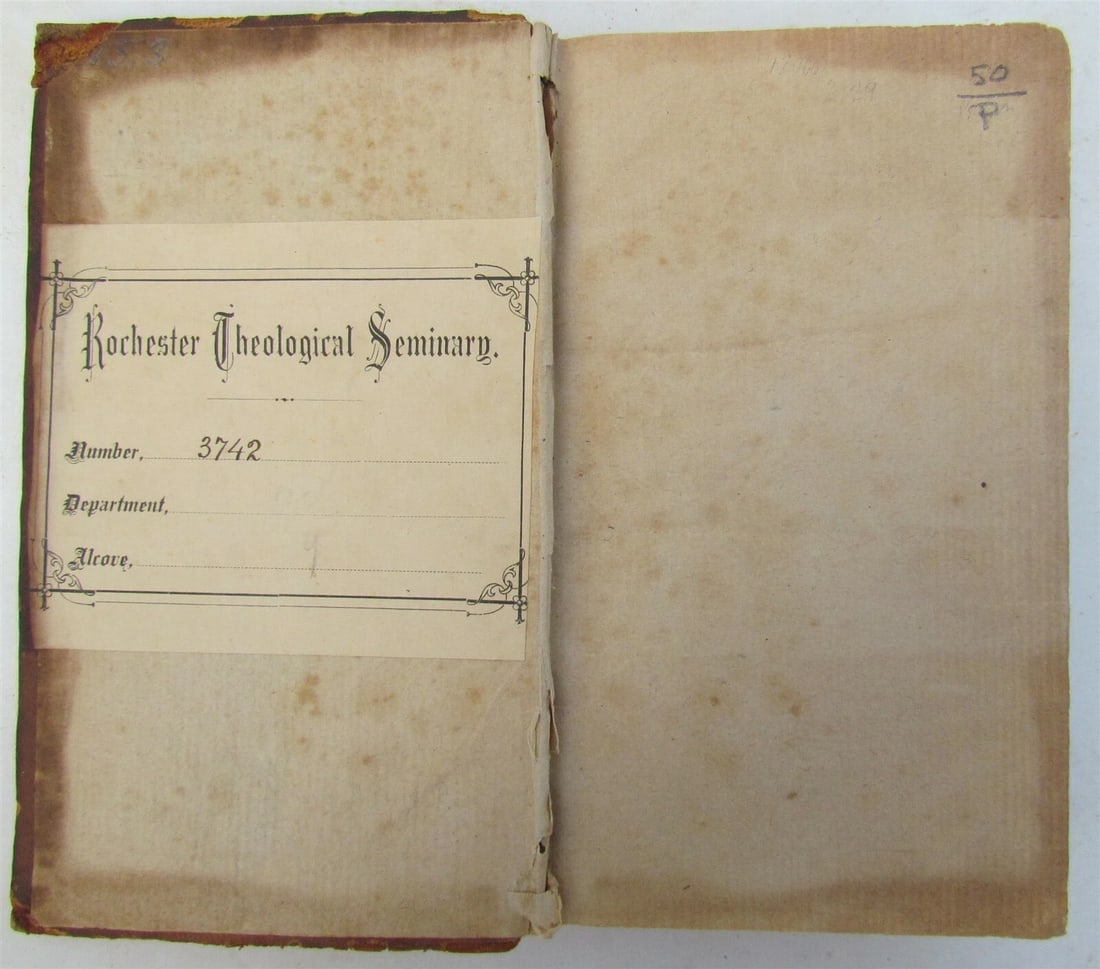 Rochester Theological Seminary.
Number, 3742
Department,
Alcove,
50
P